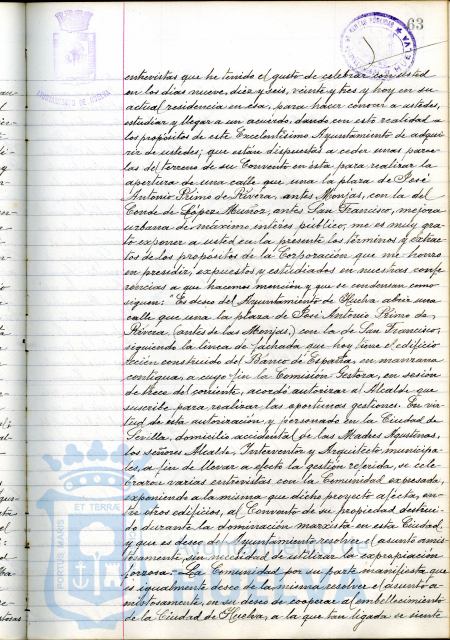 63
AYUNTAMIENTO DE HUELVA
entrevistas que he tenido el gusto de celebrar con usted
en los dias nueve, diez y seis, veinte y tres y hoy en su
actual residencia en ésa, para hacer conocer a ustedes,
estudiar y llegar a un acuerdo, dando con esto realidad a
los propósitos de este Excelentisimo Ayuntamiento de adqui
rir de ustedes, que están dispuestas a ceder unas parce-
las de terreno de su Convento en ésta para realizar la
apertura de una calle que una la plaza de José
Antonio Primo de Rivera, antes Monjas, con la del
Conde de López Muñoz, antes San Francisco, mejora
urbana de máximo interés público, me es muy gra-
to exponer a usted en la presente los términos y extrac-
tos de los propósitos de la Corporación que me honro
en presidir, expuestos y estudiados en nuestras confe
rencias a que hacemos mención y que se condensan como
siguen: "Es deseo del Ayuntamiento de Huelva abrir una
calle que una la plaza de José Antonio Primo de
Rivera, (antes de las Monjas,) con la de San Francisco,
siguiendo la linea de fachada que hoy tiene el edificio
recien construido del Banco de España, en manzana
contigua, a cuyo fin la Comisión Gestora, en sesión
de trece del corriente, acordó autorizar al Alcalde que
suscribe para realizar las oportunas gestiones. En vir-
tud de esta autorización, y personado en la Ciudad de
Sevilla, domicilio accidental de las Madres Agustinas,
los señores Alcalde, Interventor y Arquitecto municipa-
les, a fin de llevar a efecto la gestión referida, se cele
braron varias entrevistas con la Comunidad expresada,
exponiendo a la misma que dicho proyecto afecta, en-
tre otros edificios, al Convento de su propiedad destrui-
do durante la dominación marxista en esta Ciudad,
y que es deseo del Ayuntamiento resolver el asunto amis
tosamente, sin necesidad de utilizar la expropiación
forzosa. La Comunidad por su parte manifiesta que
es igualmente deseo de la misma resolver el asunto a-
mistosamente, en su deseo de cooperar al embellecimiento
de la Ciudad de Huelva, a la que tan ligada se siente
ET TERRAE
PORTUS MARIS
HUELVA